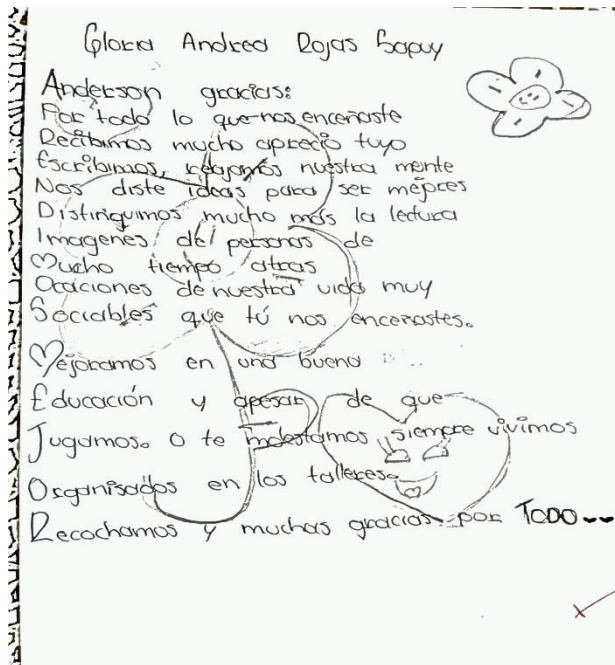 Gloria Andrea Rojas Sapuy
Anderson gracias:
Por todo lo que nos enceñaste
Recibimos mucho aprecio tuyo
Escribimos, relajamos nuestra mente
Nos diste ideas para ser mejores
Distinguimos mucho más la lectura
Imagenes del personas de
Mucho tiempo atras
Ocaciones de nuestra vida muy
Sociables que tú nos enceñastes.
Mejoramos en una buena
Educación y apesar de que
Jugamos. o te molestamos siempre vivimos
Organisados en los talleres.
Recochamos y muchas gracias por TODO--